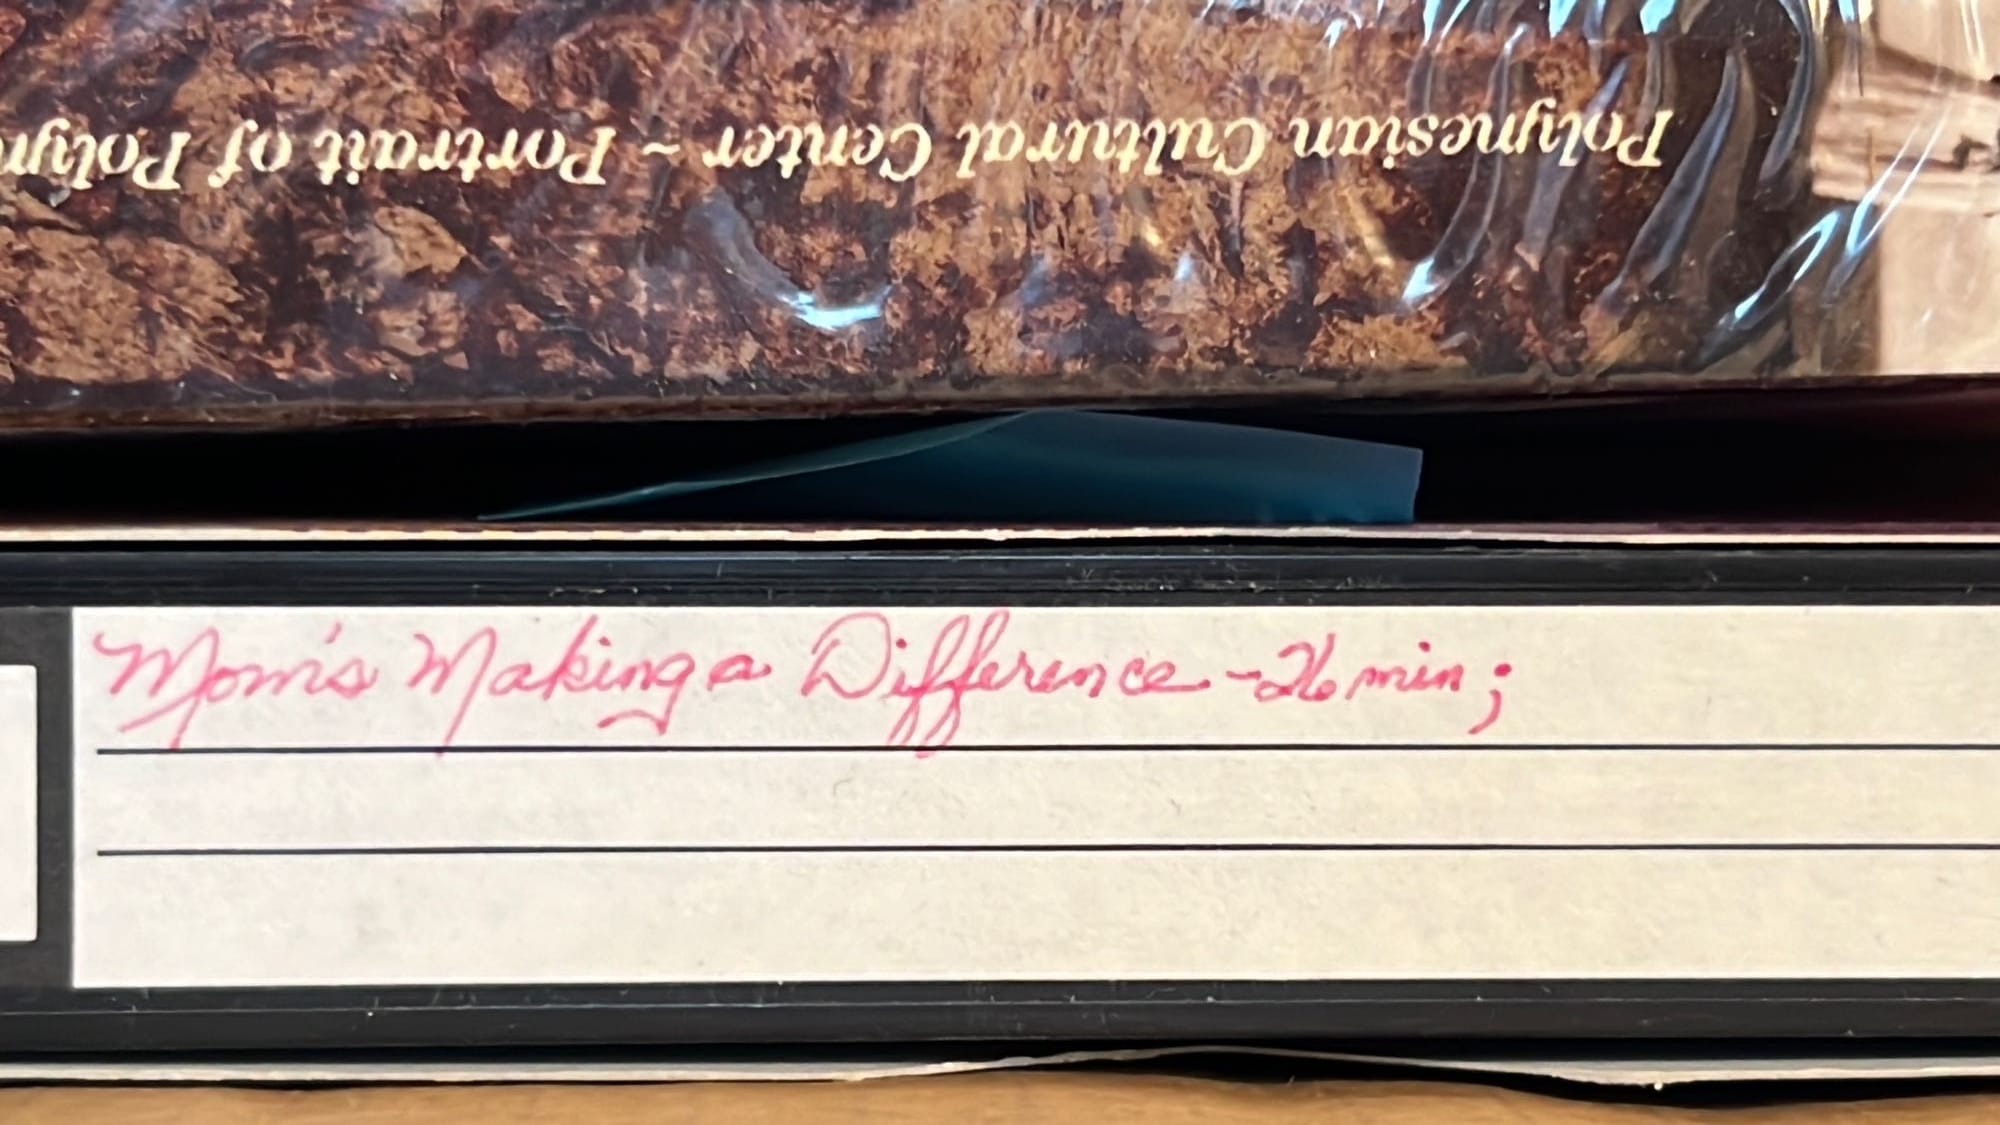 Polynesian Cultural Center ~ Portrait of Polyn
Mom's Making a Difference - 26 min;